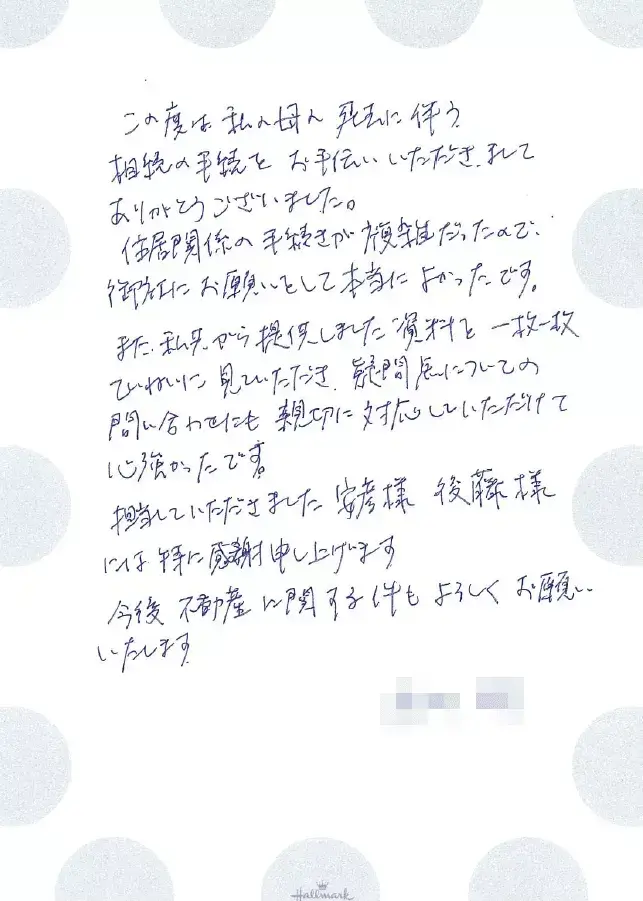 この度は 私の母の 死去に 伴う
相続の手続を お手伝い いただきまして
ありがとうございました。
住居関係の 手続きが 複雑だったので、
御社に お願いをして 本当に よかったです。
また、私共から 提供しました 資料を 一枚一枚
ていねいに 見ていただき、疑問点についての
問い合わせにも 親切に 対応していただけて
心強かったです。
担当していただきました 安彦様 後藤様
には 特に 感謝申し上げます
今後 不動産に関する件も よろしく お願い
いたします
Hallmark